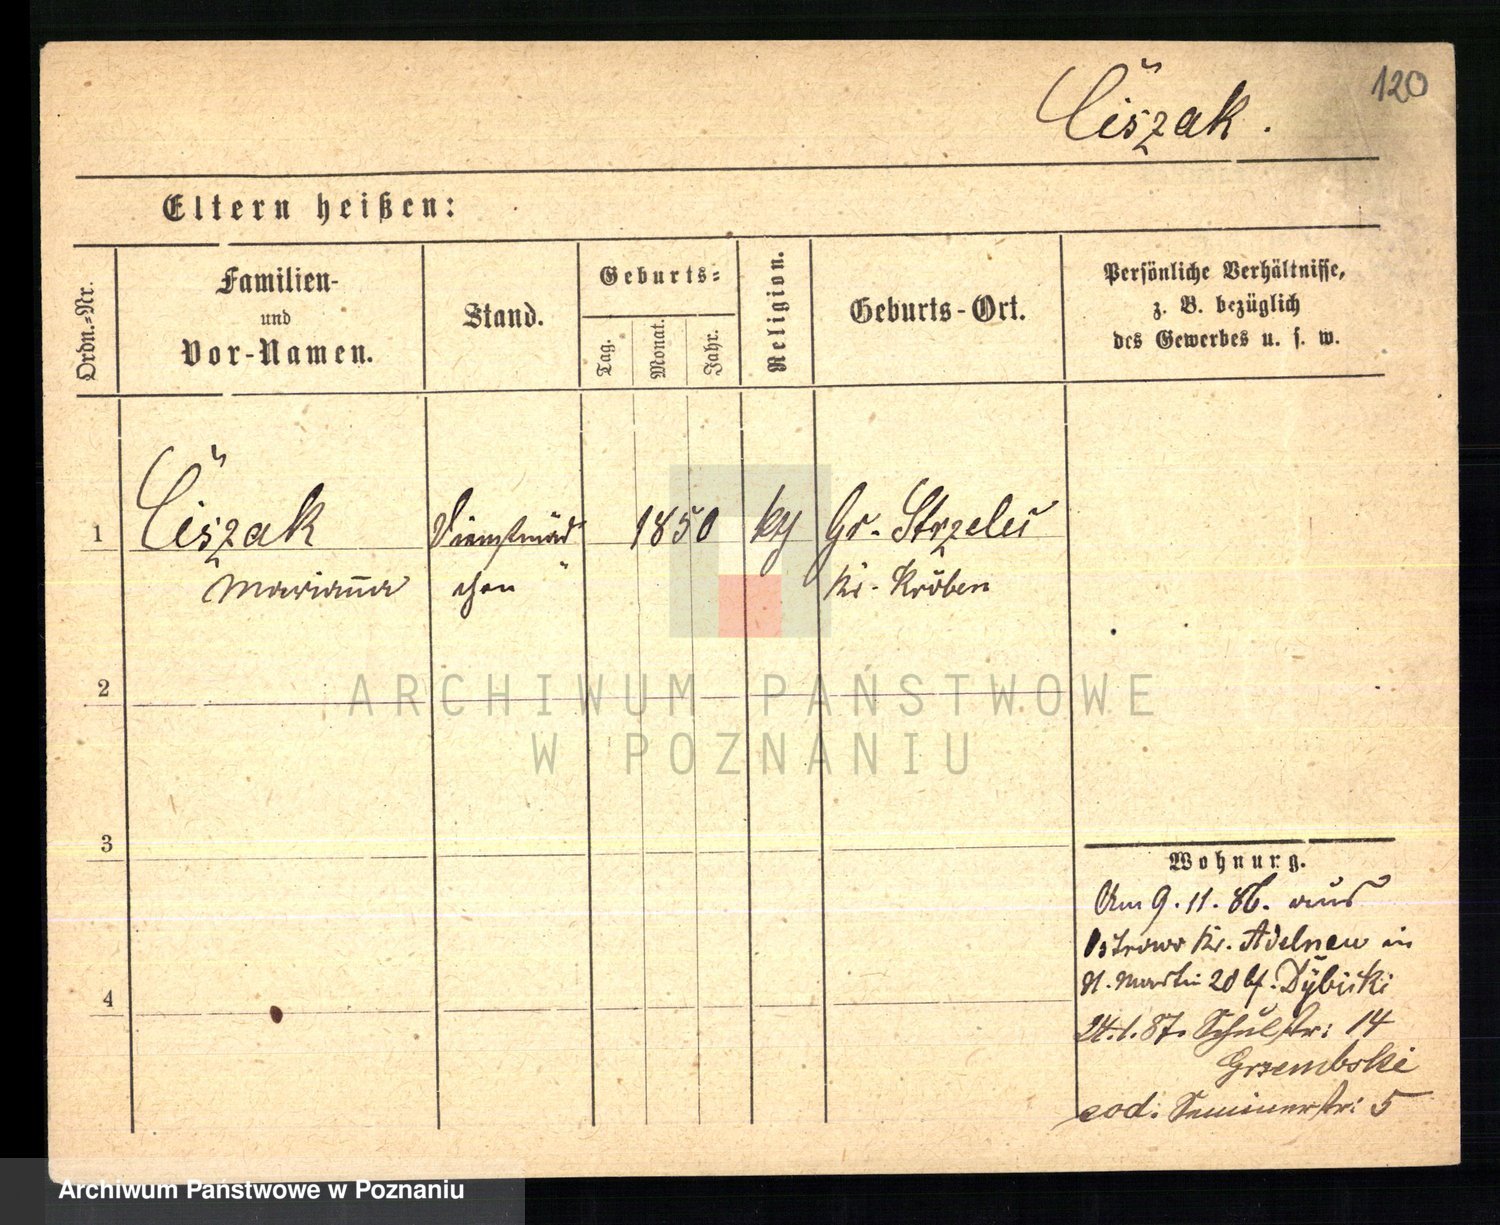 120
Cišzak.
Eltern heißen:
Ordn.-Nr.
Familien-
und
Vor-Namen.
Stand.
Geburts-
Tag.
Monat.
Jahr.
Religion.
Geburts-Ort.
Persönliche Verhältnisse,
z. B. bezüglich
des Gewerbes u. s. w.
1
Cišzak
Marianna
Dienstmäd
chen
1850
Gr. Strzelce
Kr. Kröben
ARCHIWUM PAŃSTWOWE
W POZNANIU
2
3
4
Wohnung.
Am 9.11.86. aus
Ostrowo Kr. Adelnau in
St. Martin 20 bf. Dybicki
24.1.87. Schulstr: 14
Grzembski
eod. Seminarstr: 5
Archiwum Państwowe w Poznaniu